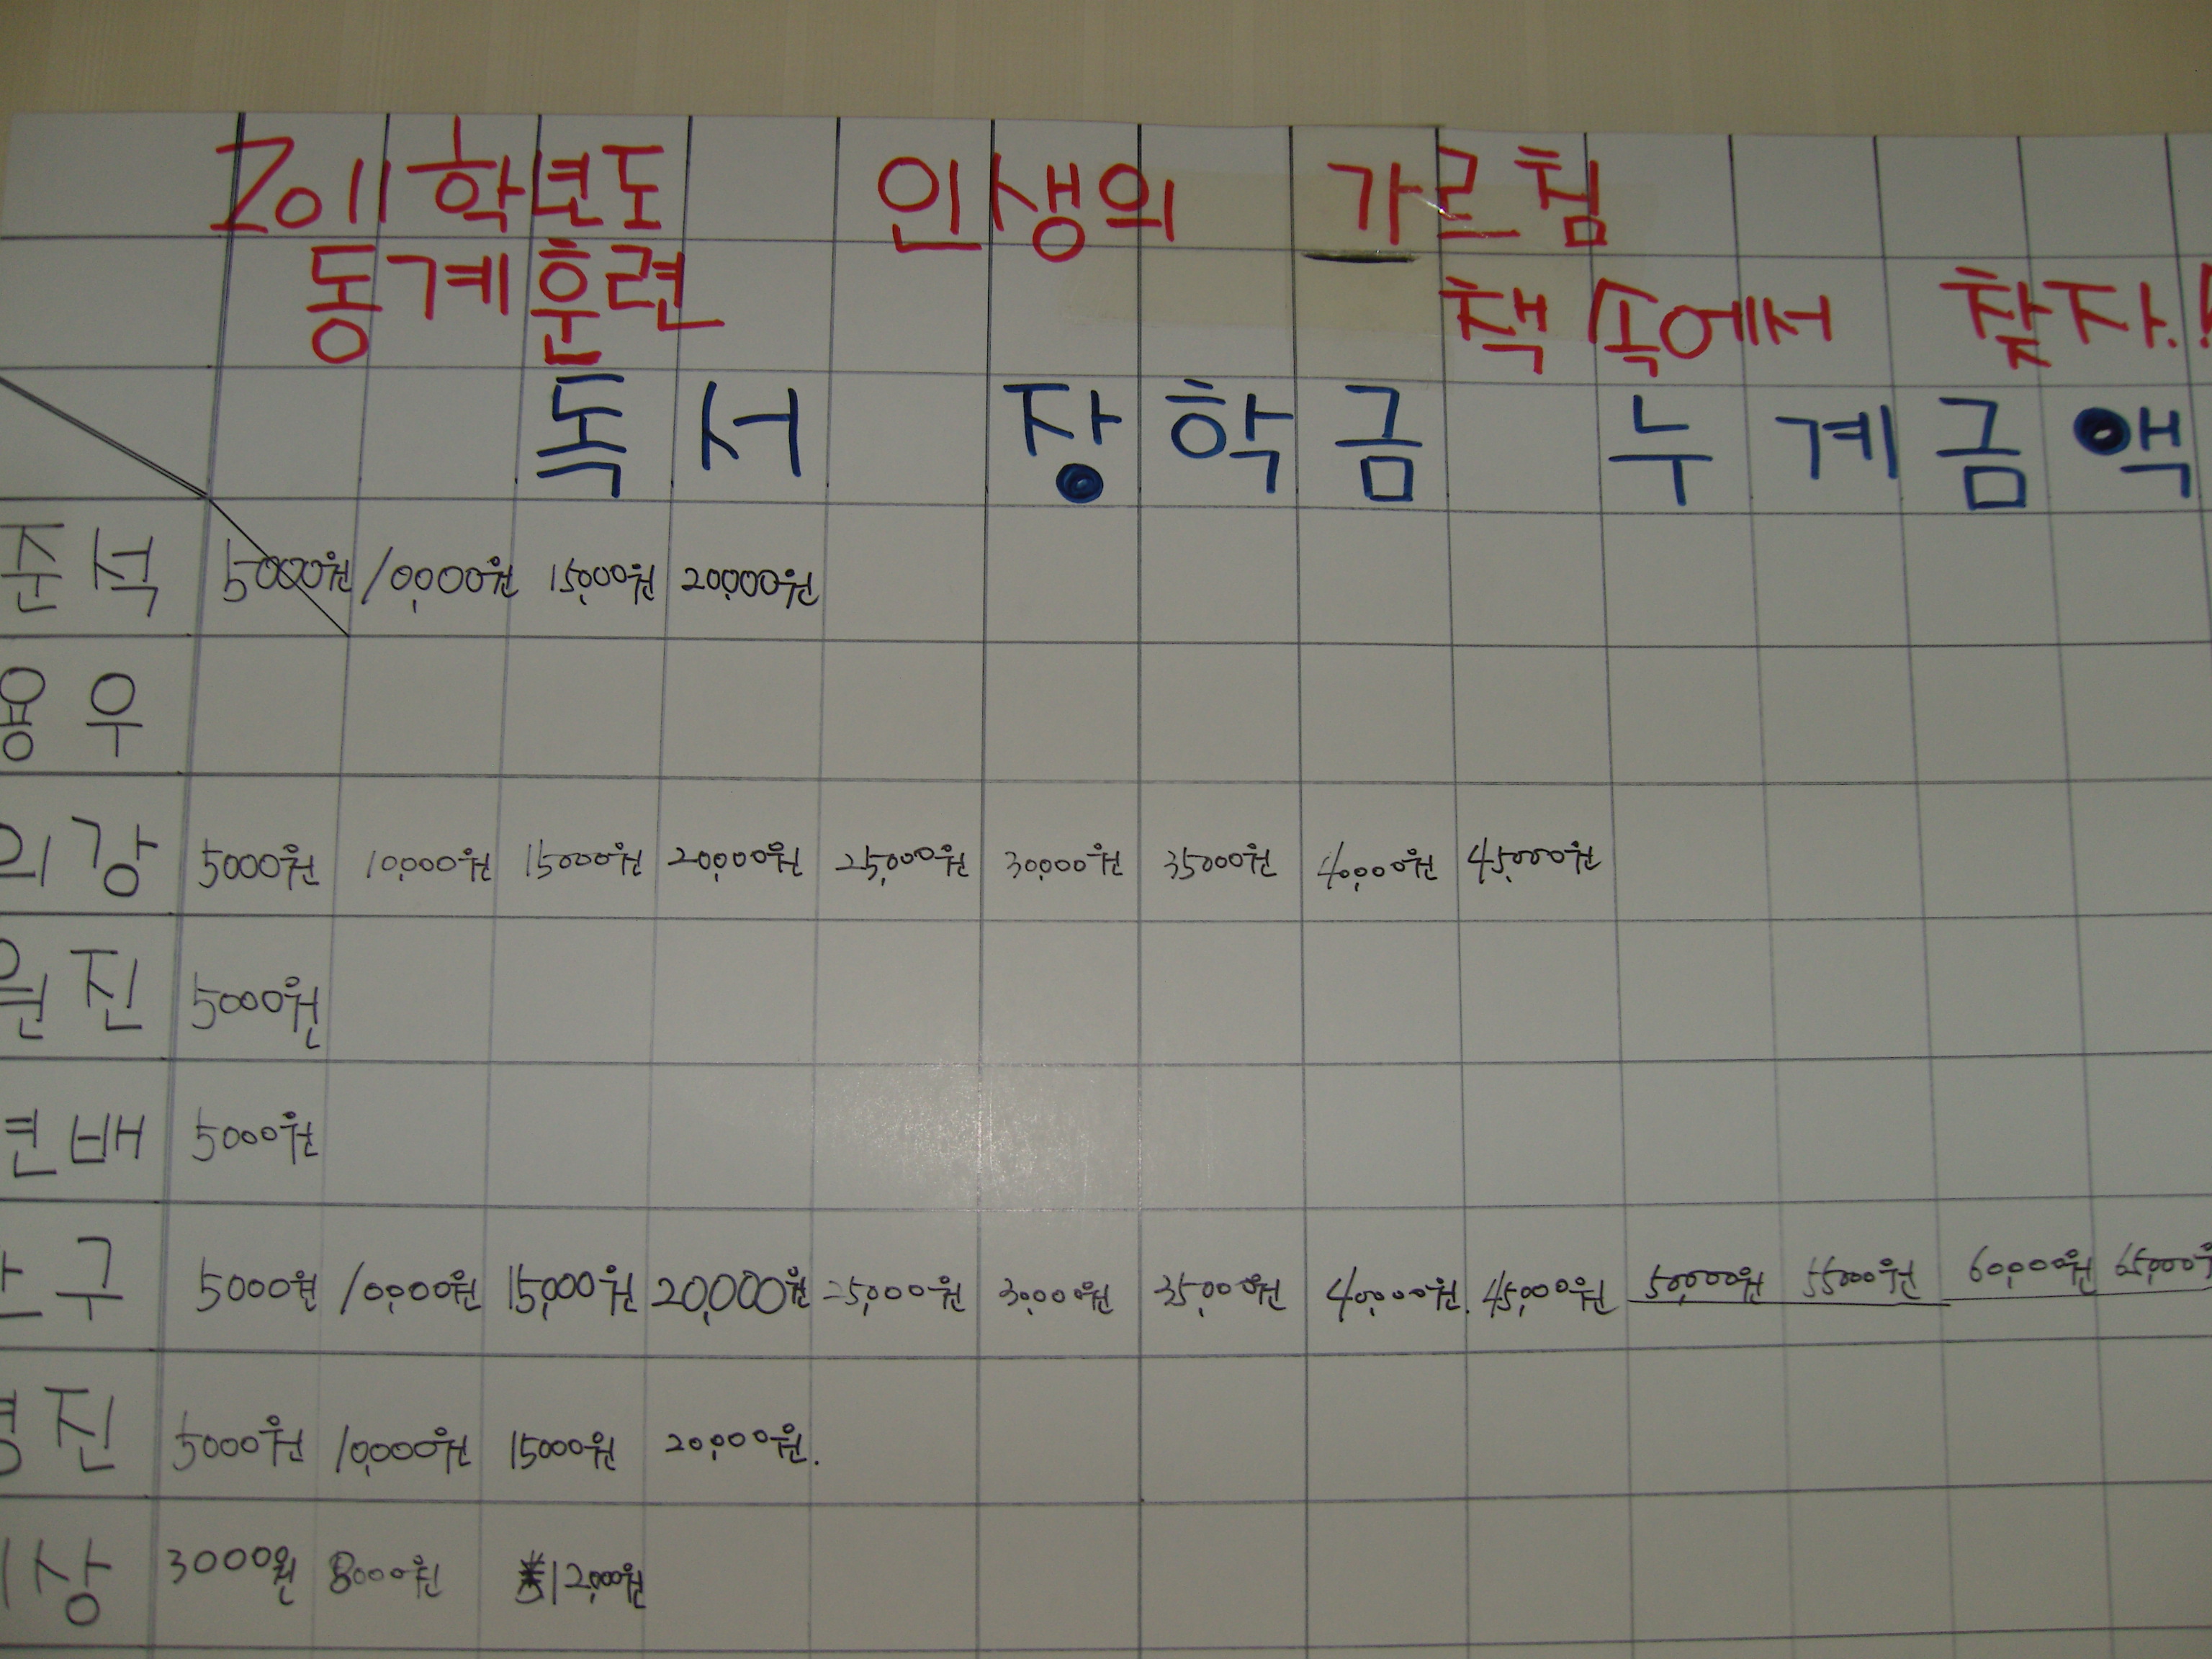 2011학년도 인생의 가르침
동계훈련 책 속에서 찾자.!
독서 장학금 누계금액
준석 5000원 10,000원 15,000원 20,000원
용우
의강 5000원 10,000원 15000원 20,000원 25,000원 30,000원 35000원 40,000원 45,000원
원진 5000원
연배 5000원
구 5000원 10,000원 15,000원 20,000원 25,000원 30,000원 35,000원 40,000원. 45,000원 50,000원 55000원 60,000원 65,000원
진 5000원 10,000원 15000원 20,000원.
상 3000원 8000원 12,000원